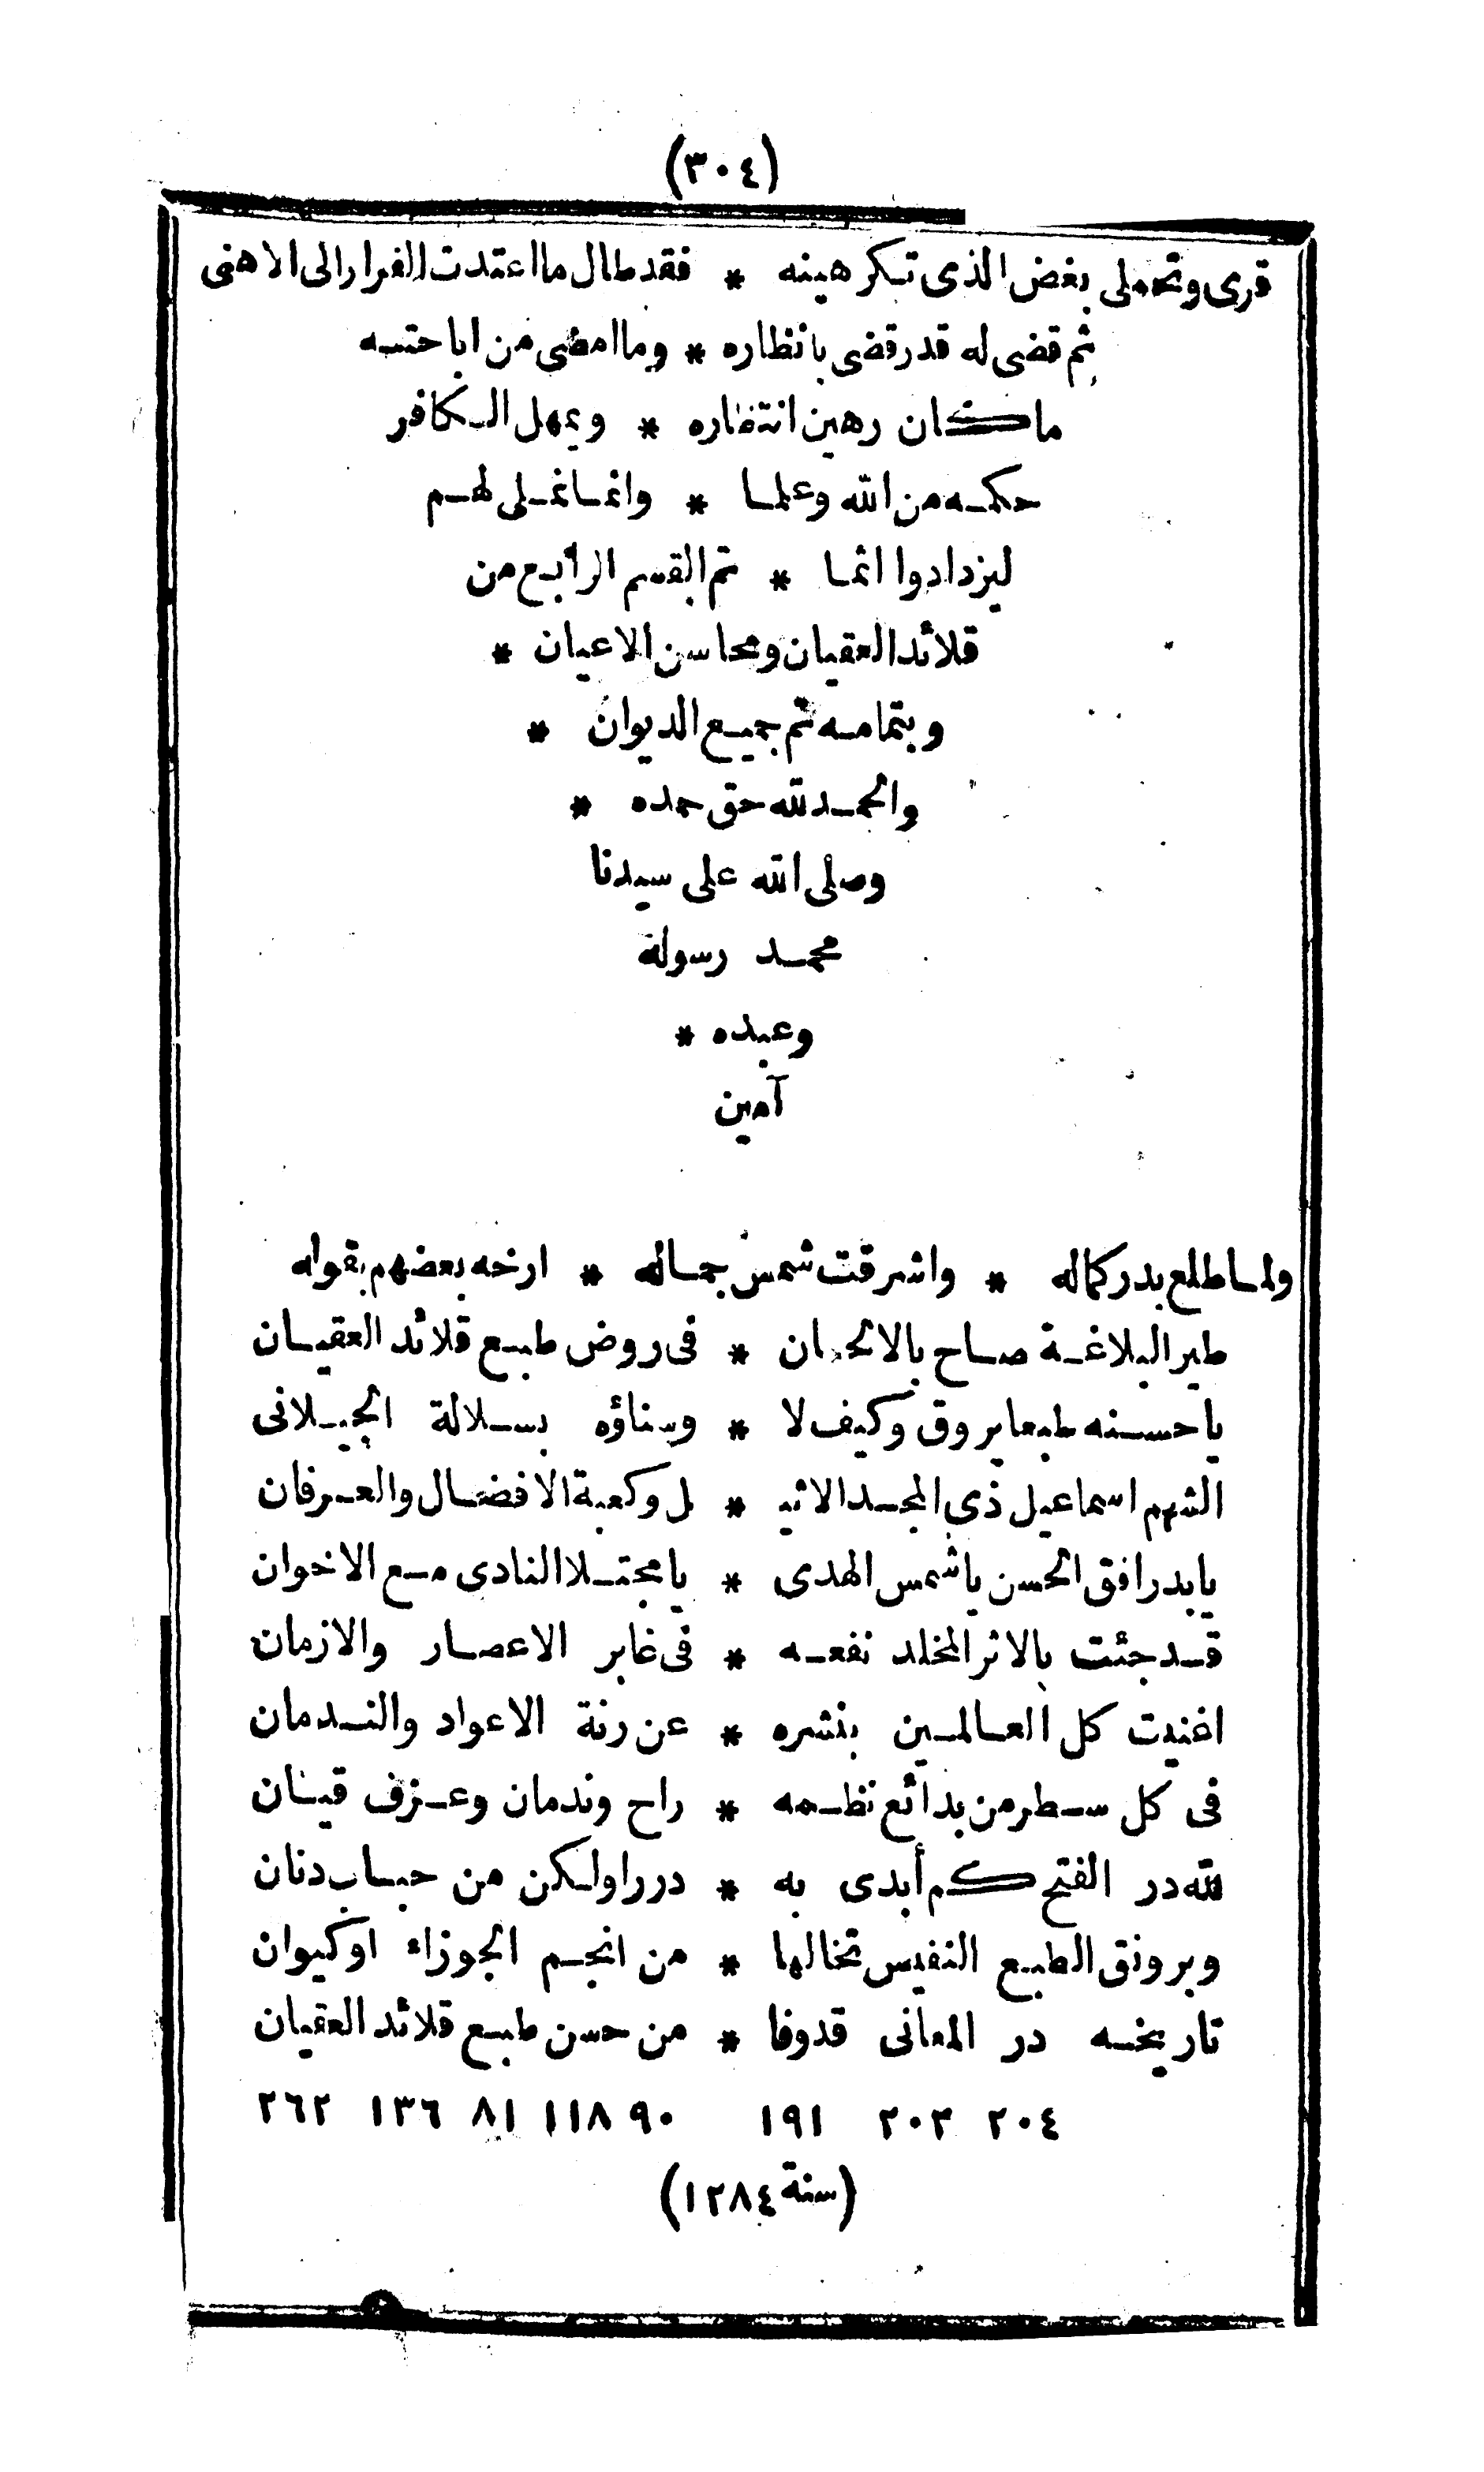 (٣٠٤)
قرى وتحملى بغض الذى تكرهينه * فقد طال ما اعتدت الفرار الى الاهنى
ثم قضى له قدر قضى بانظاره * وما امضى من اباحته
ما كان رهين انتظاره * ويمهل الكافر
حكمه من الله وعلما * وانما نملى لهم
ليزدادوا اثما * تم القسم الرابع من
قلائد العقيان ومحاسن الاعيان *
وبتمامه تم جميع الديوان *
والحمد لله حق حمده *
وصلى الله على سيدنا
محمد رسوله
وعبده *
آمين
ولما طلع بدر كماله * واشرقت شمس جماله * ارخه بعضهم بقوله
طير البلاغة صاح بالالحان * فى روض طبع قلائد العقيان
يا حسنه طبعا يروق وكيف لا * وسناؤه بسلالة الجيلانى
الشهم اسماعيل ذى المجد الاثيـ * ـل وكعبة الافضال والعرفان
يا بدر افق الحسن يا شمس الهدى * يا مجتلا النادى مع الاخوان
قد جئت بالاثر المخلد نفعه * فى غابر الاعصار والازمان
اغنيت كل العالمين بنشره * عن رنة الاعواد والندمان
فى كل سطر من بدائع نظمه * راح وندمان وعزف قيان
لله در الفتح كم أبدى به * دررا ولكن من حباب دنان
وبرونق الطبع النفيس تخالها * من انجم الجوزاء او كيوان
تاريخه در المعانى قدوفا * من حسن طبع قلائد العقيان
٢٠٤ ٢٠٢ ١٩١ ٩٠ ١١٨ ٨١ ١٣٦ ٢٦٢
(سنة ١٢٨٤)